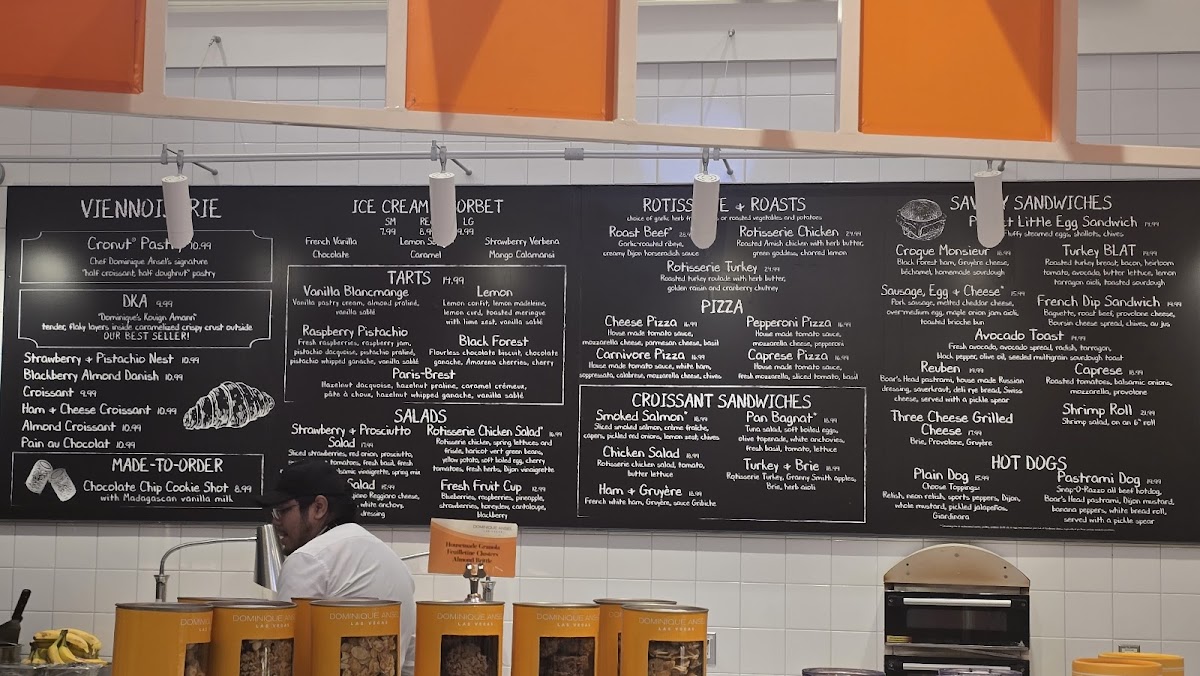 VIENNOIS RIE
Cronut® Past 10.99
Chef Dominique Ansel's signature
"half croissant, half doughnut" pastry
DKA 9.99
"Dominique's Kouign Amann"
tender, flaky layers inside caramelized crispy crust outside.
OUR BEST SELLER!
Strawberry & Pistachio Nest 10.99
Blackberry Almond Danish 10.99
Croissant 9.99
Ham & Cheese Croissant 10.99
Almond Croissant 10.99
Pain au Chocolat 10.99
MADE-TO-ORDER
Chocolate Chip Cookie Shot 8.99
with Madagascan vanilla milk
ICE CREAM ORBET
SM LG
7.99
French Vanilla Lemon Strawberry Verbena
Chocolate Caramel Mango Calamansi
TARTS 14.99
Vanilla Blancmange
Vanilla pastry cream, almond praliné,
vanilla sablé
Raspberry Pistachio
Fresh raspberries, raspberry jam,
pistachio dacquoise, pistachio praliné,
pistachio whipped ganache, vanilla sablé
Lemon
Lemon confit, lemon madeleine,
lemon curd, toasted meringue
with lime zest, vanilla sablé
Black Forest
Flourless chocolate biscuit, chocolate
ganache, Amarena cherries, cherry
Paris-Brest
Hazelnut dacquoise, hazelnut praline, caramel crémeux,
pâte à choux, hazelnut whipped ganache, vanilla sablé
SALADS
Strawberry & Prosciutto
Salad 17.99
Sliced strawberries, red onion, prosciutto,
tomatoes, fresh basil, fresh
vinaigrette, spring mix
Salad 15.99
Reggiano cheese,
anchovy
dressing
Rotisserie Chicken Salad* 16.99
Rotisserie chicken, spring lettuces, and
frisée, haricot vert green beans,
yellow potato, soft boiled egg, cherry
tomatoes, fresh herbs, Dijon vinaigrette
Fresh Fruit Cup 12.99
Blueberries, raspberries, pineapple,
strawberries, honeydew, cantaloupe,
blackberry
ROTISS E & ROASTS
choice of garlic herb or roasted vegetables and potatoes
Roast Beef*
Garlic-roasted ribeye,
creamy Dijon horseradish sauce
Rotisserie Chicken 24.99
Roasted Amish chicken with herb butter,
green goddess, charred lemon
Rotisserie Turkey 24.99
Roasted turkey roulade with herb butter,
golden raisin and cranberry chutney
PIZZA
Cheese Pizza 16.99
House made tomato sauce,
mozzarella cheese, parmesan cheese, basil
Pepperoni Pizza 16.99
House made tomato sauce,
mozzarella cheese, pepperoni
Carnivore Pizza 16.99
House made tomato sauce, white ham,
soppressata, calabrese, mozzarella cheese, chives
Caprese Pizza 16.99
House made tomato sauce,
fresh mozzarella, sliced tomato, basil
CROISSANT SANDWICHES
Smoked Salmon* 18.99
Sliced smoked salmon, crème fraîche,
capers, pickled red onions, lemon zest, chives
Chicken Salad 18.99
Rotisserie chicken salad, tomato,
butter lettuce
Ham & Gruyère 18.99
French white ham, Gruyère, sauce Gribiche
Pan Bagnat* 18.99
Tuna salad, soft boiled eggs,
olive tapenade, white anchovies,
fresh basil, tomato, lettuce
Turkey & Brie 18.99
Rotisserie Turkey, Granny Smith apples,
Brie, herb aioli
SA Y SANDWICHES
P t Little Egg Sandwich
Fluffy steamed eggs, shallots, chives
Croque Monsieur 18.99
Black Forest ham, Gruyère cheese,
béchamel, homemade sourdough
Turkey BLAT 19.99
Roasted turkey breast, bacon, heirloom
tomato, avocado, butter lettuce, lemon
tarragon aioli, toasted sourdough
Sausage, Egg & Cheese* 15.99
Pork sausage, melted cheddar cheese,
over-medium egg, maple onion jam aioli,
toasted brioche bun
French Dip Sandwich 19.99
Baguette, roast beef, provolone cheese,
Boursin cheese spread, chives, au jus
Avocado Toast 14.99
Fresh avocado, avocado spread, radish, tarragon,
black pepper, olive oil, seeded multigrain sourdough toast
Reuben 19.99
Boar's Head pastrami, house made Russian
dressing, sauerkraut, deli rye bread, Swiss
cheese, served with a pickle spear
Caprese 18.99
Roasted tomatoes, balsamic onions,
mozzarella, provolone
Three Cheese Grilled
Cheese 17.99
Brie, Provolone, Gruyère
Shrimp Roll 21.99
Shrimp salad, on an 6" roll
HOT DOGS
Plain Dog 15.99
Choose Toppings:
Relish, neon relish, sports peppers, Dijon,
whole mustard, pickled jalapeños,
Giardinara
Pastrami Dog 19.99
Snap-O-Razzo all beef hotdog,
Boar's Head pastrami, Dijon mustard,
banana peppers, white bread roll,
served with a pickle spear
DOMINIQUE ANSEL
Homemade Granola
Feuilletine Clusters
Almond Brittle
DOMINIQUE
LAS
DOMINIQUE ANSEL
LAS VEGAS
DOMINIQUE ANSEL
LAS VEGAS
DOMINIQUE ANSEL
LAS VEGAS
DOMINIQUE ANSEL
LAS VEGAS
DOMINIQUE ANSEL
LAS VEGAS